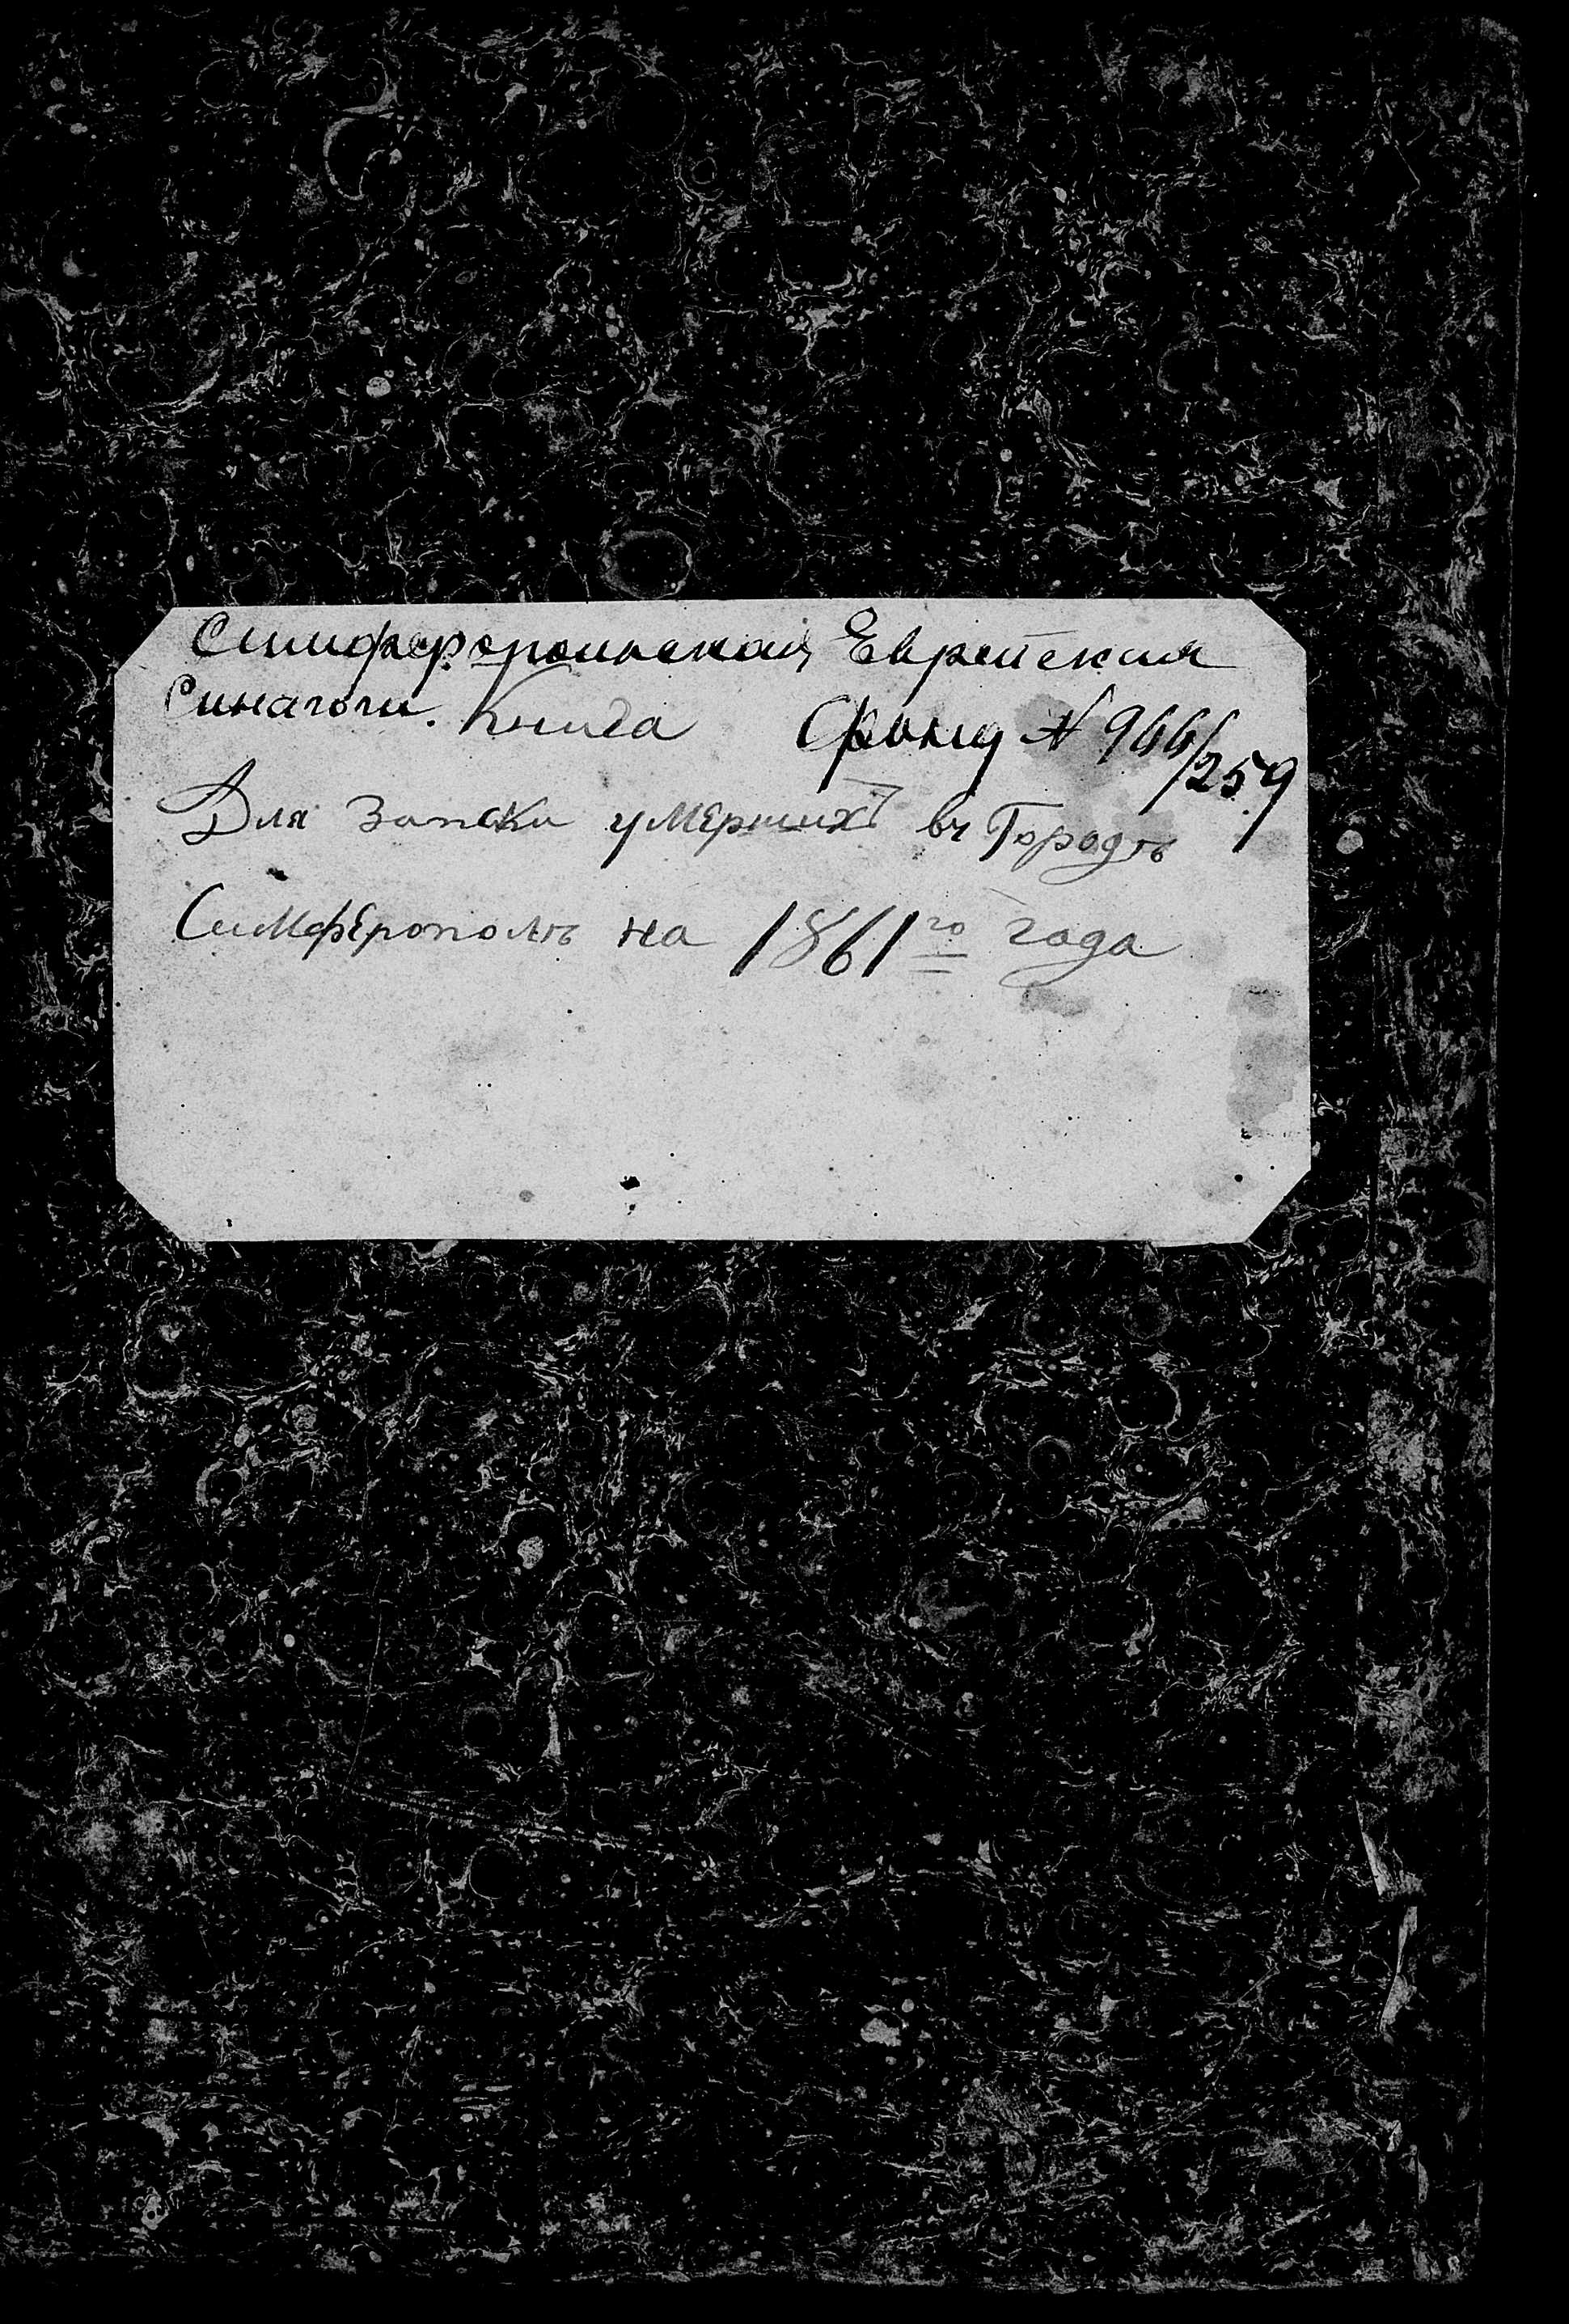 Симферопольская Еврейская
Синагоги. Книга Фонд № 944/259
Для Записки умершихъ въ Городѣ
Симферополѣ на 1861го года